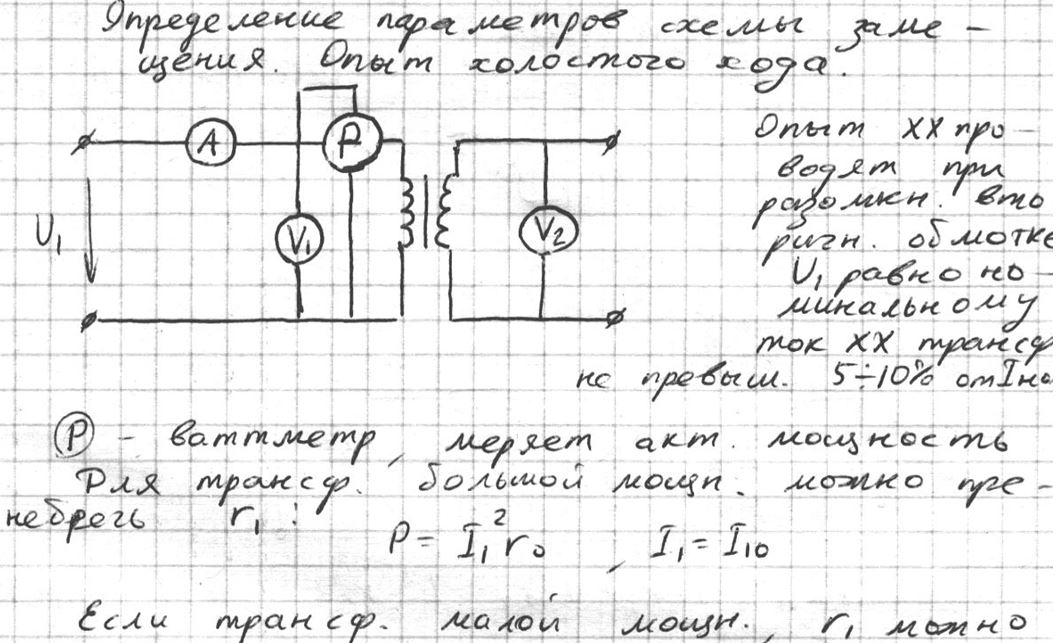 Определение параметров схемы заме-
щения. Опыт холостого хода.
A
P
U₁
V₁
V₂
Опыт ХХ про-
водят при
разомкн. вто
ричн. обмотке
U₁ равно но-
минальному
ток ХХ трансф
не превыш. 5÷10% от Iно
P - ваттметр, меряет акт. мощность
Для трансф. большой мощн. можно пре-
небречь r₁ :
P = I₁² r₀ , I₁ = I₁₀
Если трансф. малой мощн., r₁ можно